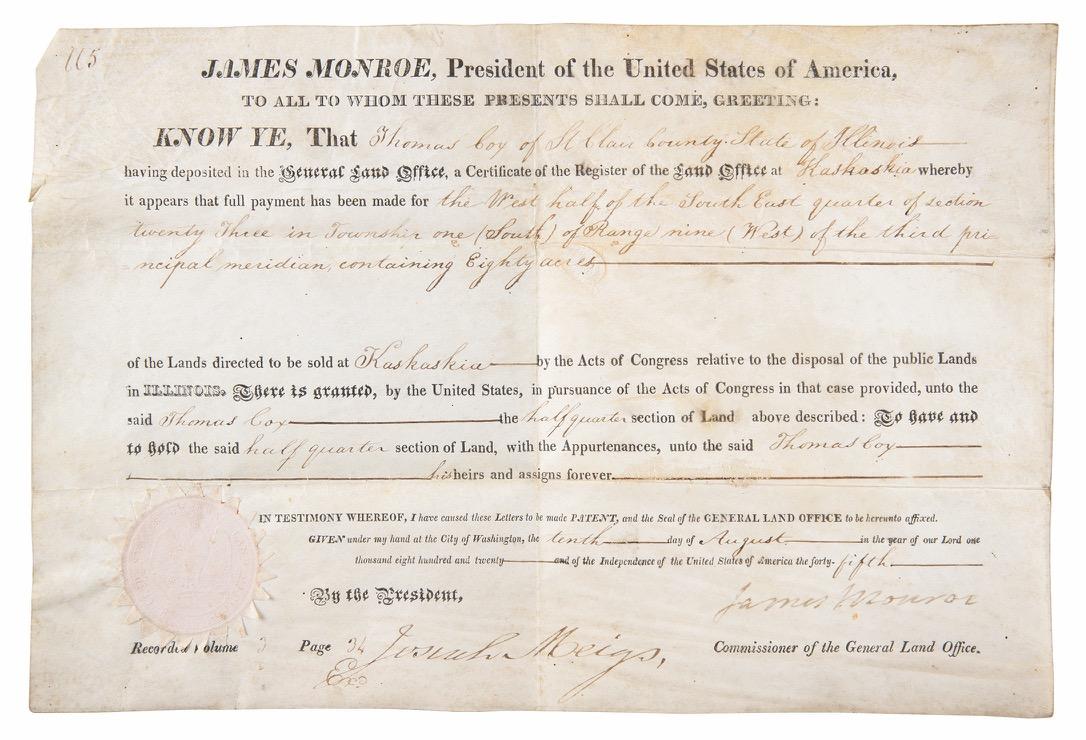 115
JAMES MONROE, President of the United States of America,
TO ALL TO WHOM THESE PRESENTS SHALL COME, GREETING:
KNOW YE, That Thomas Cox of St Clair County State of Illinois
having deposited in the General Land Office, a Certificate of the Register of the Land Office at Kaskaskia whereby
it appears that full payment has been made for the West half of the South East quarter of section
twenty Three in Township one (South) of Range nine (West) of the third pri=
=ncipal meridian, containing Eighty acres
of the Lands directed to be sold at Kaskaskia by the Acts of Congress relative to the disposal of the public Lands
in ILLINOIS. There is granted, by the United States, in pursuance of the Acts of Congress in that case provided, unto the
said Thomas Cox the half quarter section of Land above described: To have and
to hold the said half quarter section of Land, with the Appurtenances, unto the said Thomas Cox
his heirs and assigns forever.
IN TESTIMONY WHEREOF, I have caused these Letters to be made PATENT, and the Seal of the GENERAL LAND OFFICE to be hereunto affixed.
GIVEN under my hand at the City of Washington, the tenth day of August in the year of our Lord one
thousand eight hundred and twenty and of the Independence of the United States of America the forty-fifth
By the President, James Monroe
Recorded Volume 3 Page 34 Josiah Meigs, Commissioner of the General Land Office.